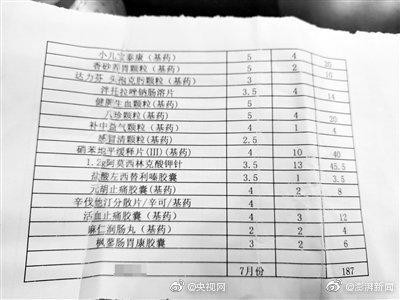 小儿宝泰康(基药) 5 4 20
香砂养胃颗粒(基药) 5 2 10
达力芬 头孢克肟颗粒(基药) 3
泮托拉唑钠肠溶片 3.5 4 14
健脾生血颗粒(基药) 5
八珍颗粒(基药) 5
补中益气颗粒(基药) 4 1 4
感冒清颗粒(基药) 2.5
硝苯地平缓释片(III)(基药) 4 10 40
1.2g阿莫西林克酸钾针 3.5 13 45.5
盐酸左西替利嗪胶囊 3.5 1 3.5
元胡止痛胶囊(基药) 4 2 8
辛伐他汀分散片/辛可/基药 4
活血止痛胶囊(基药) 4 3 12
麻仁润肠丸(基药) 2 2 4
枫蓼肠胃康胶囊 3 2 6
7月份 187
@央视网 @澎湃新闻